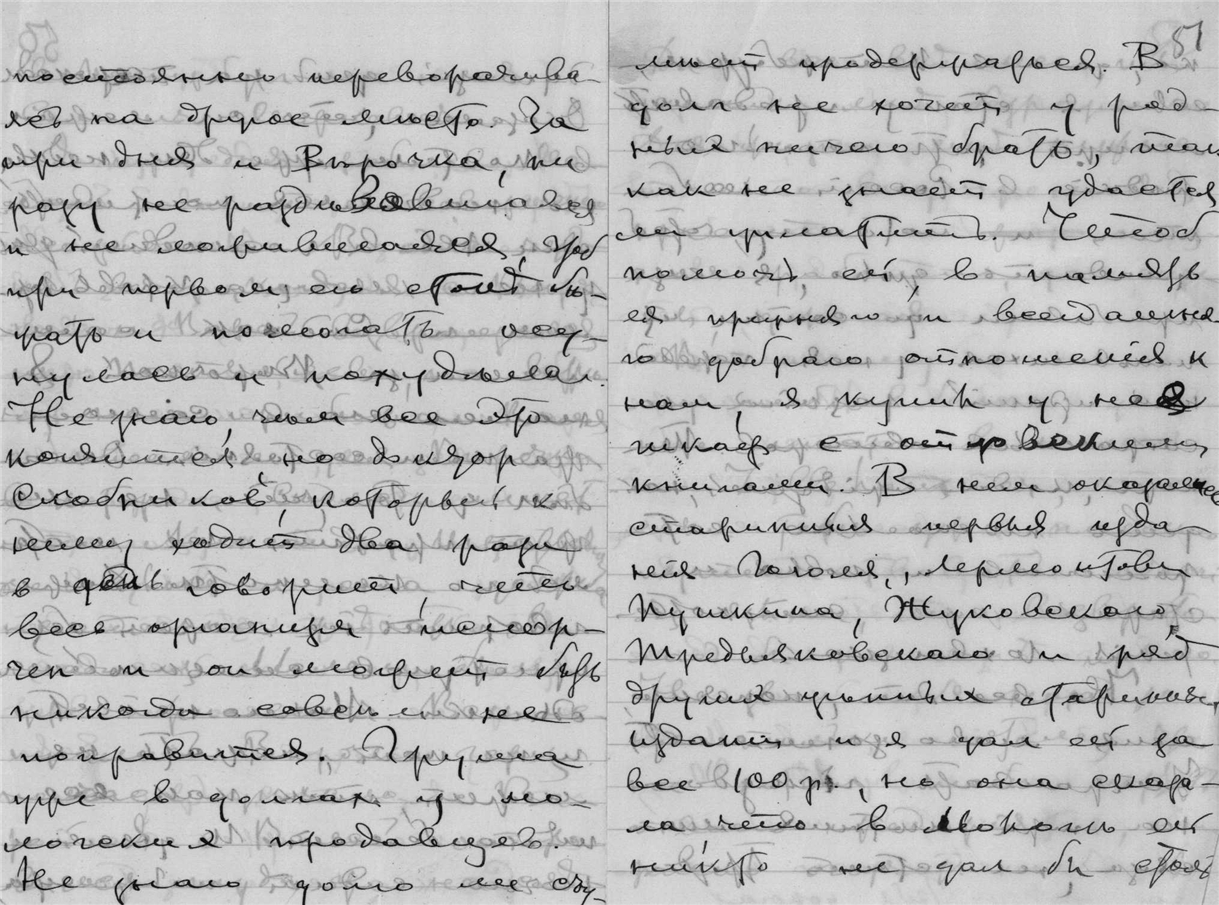 постоянно переворачива-
ясь на другое место. За
три дня и Вѣрочка, ни
разу не раздѣвавшаяся
и не ложившаяся, чтоб
при первом его стонѣ бѣ-
жать и помогать осу-
нулась и похудѣла.
Не знаю, чѣм все это
кончится, но доктор
Слобников, который к
нему ходит два раза
в день говорит, что
весь организм испор-
чен и он может быть
никогда совсѣм не
поправится. Груша
уже в долгах у мо-
лочных продавцев.
Не знаю долго ли су-
51
мѣет продержаться. В
долг не хочет у род-
ных ничего брать, так
как не знает удастся
ли уплатить. Чтоб
помочь ей, в память
ея прежняго и всегдашня-
го добраго отношенія к
нам, я купил у нея
шкаф с отцовскими
книгами. В нем оказались
старинныя первыя изда-
нія Гоголя, Лермонтова
Пушкина, Жуковскаго,
Тредьяковскаго и ряд
других цѣнных старинных
изданій и я дал ей за
все 100 р., но она сказа-
ла что в ей
никто не дал бы столь